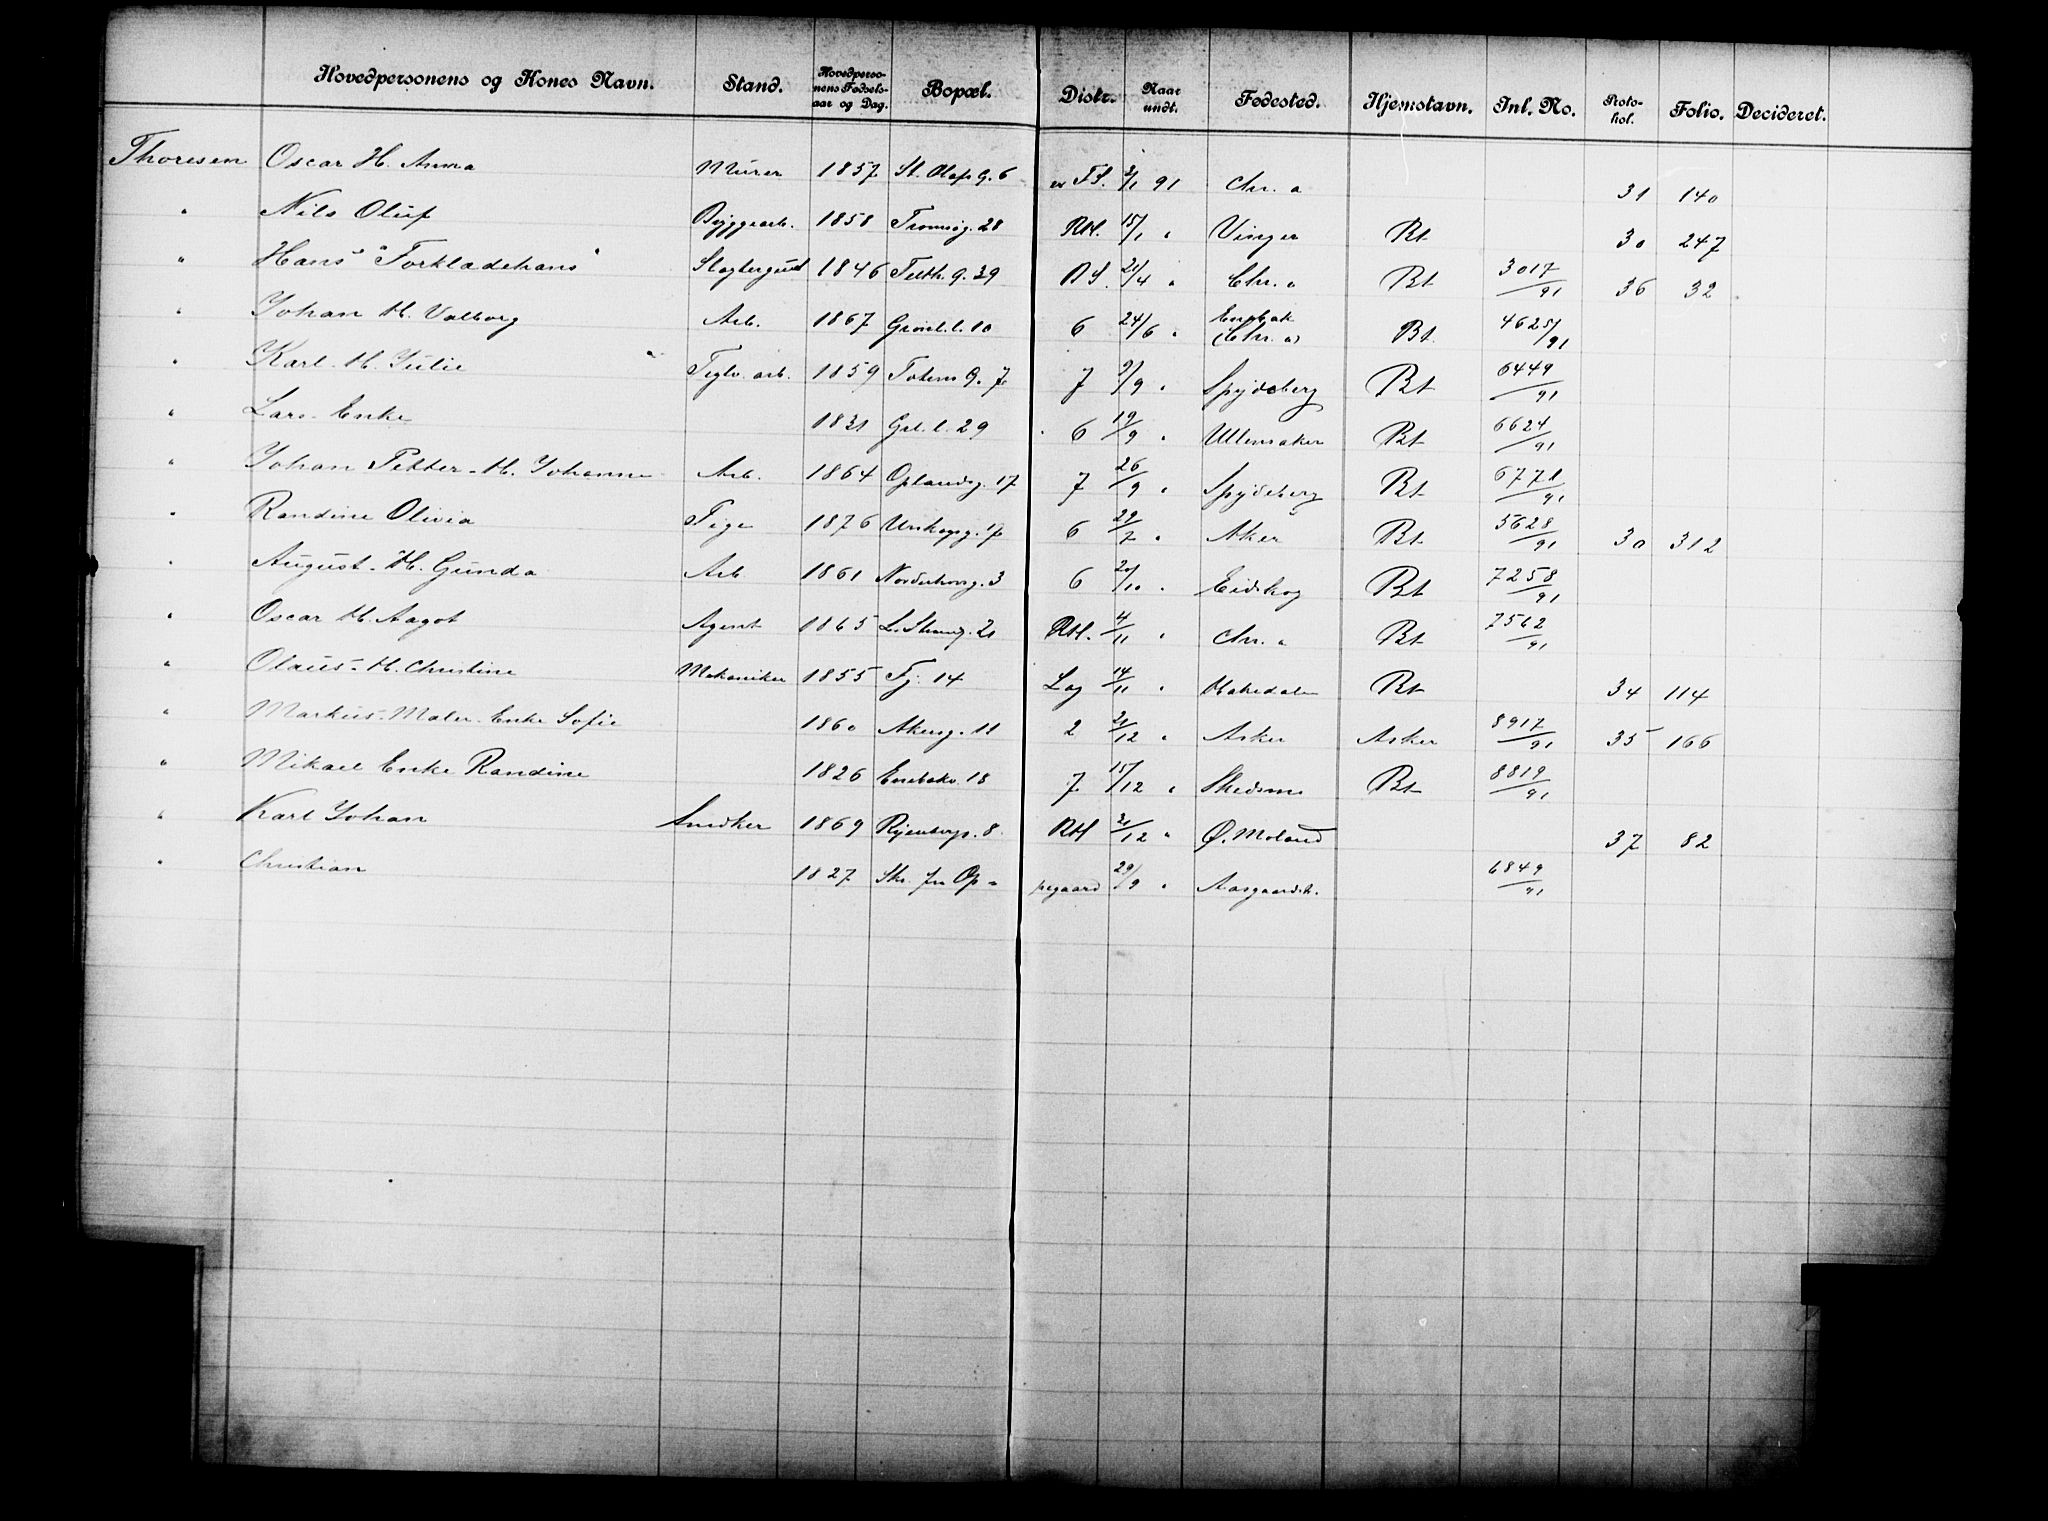 Hovedpersonens og Kones Navn. Stand. Hovedpersonens Fødselsaar og Dag. Bopæl. Distr. Naar undt. Fødested. Hjemstavn. Inl. No. Protokol. Folio. Decideret.
Thoresen Oscar H. Anna Murer 1857 St. Olafs G. 6 FS. 2/1 91 Chr. a 31 140
" Nils Oluf Byggearb. 1858 Tromsøg. 28 RM. 15/1 " Vinger Bt 30 247
" Hans "Forkladehans" Slagtergut 1846 Telth. G. 29 BS. 21/4 " Chr. a Bt 3017/91 36 32
" Johan H. Valborg Arb. 1867 Grønl. l. 10 6 24/6 " Enebak (Chr. a) Bt. 4625/91
" Karl H. Julie Teglv. arb. 1859 Totens G. 7 7 9/9 " Spydeberg Bt 6449/91
" Lars Enke 1831 Grl. l. 29 6 19/9 " Ullensaker Bt 6624/91
" Johan Petter H. Johanne Arb. 1864 Oplandsg. 17 7 26/9 " Spydeberg Bt 6771/91
" Randine Olivia Pige 1876 Urskogsg. 7 6 29/7 " Aker Bt 5628/91 30 312
" August H. Gunda Arb 1861 Norderhovsg. 3 6 20/10 " Eidskog Bt 7258/91
" Oscar H. Aagot Agent 1865 L. Strang. 21 RM. 4/11 " Chr. a Bt 7562/91
" Olaus H. Christine Mekaniker 1855 Fj. 14 Lag 14/11 " Hakedalen Bt 34 114
" Markus Maler Enke Sofie 1860 Akersg. 11 2 21/12 " Asker Asker 8917/91 35 166
" Mikael Enke Randine 1826 Enebakv. 18 7 15/12 " Skedsmo Bt 8819/91
" Karl Johan Snedker 1869 Ryenbergs. 8 RM 21/12 " Ø. Moland 37 82
" Christian 1827 Skr. fra Op-pegaard 29/9 " Aasgaardstr. 6849/91